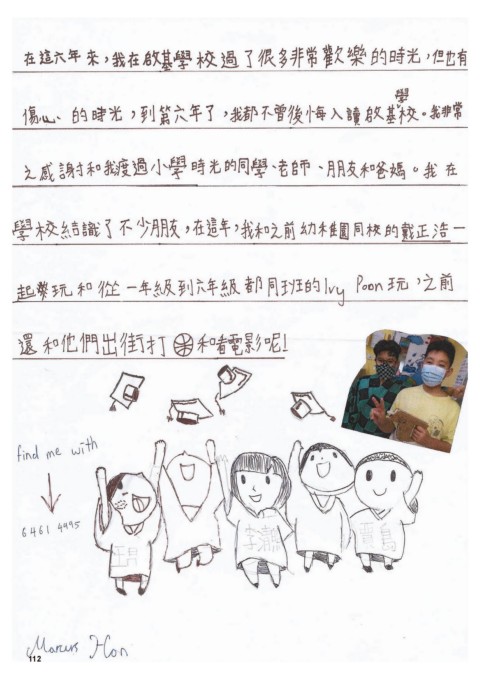 在這六年來，我在啟基學校過了很多非常歡樂的時光，但也有
傷心的時光，到第六年了，我都不曾後悔入讀啟基學校。我非常
之感謝和我渡過小學時光的同學、老師、朋友和爸媽。我在
學校結識了不少朋友，在這年，我和之前幼稚園同校的戴正浩一
起帶玩和從一年級到六年級都同班的Ivy Poon玩，之前
還和他們出街打和看電影呢！
find me with
6461 4995
Marcus Hon
112